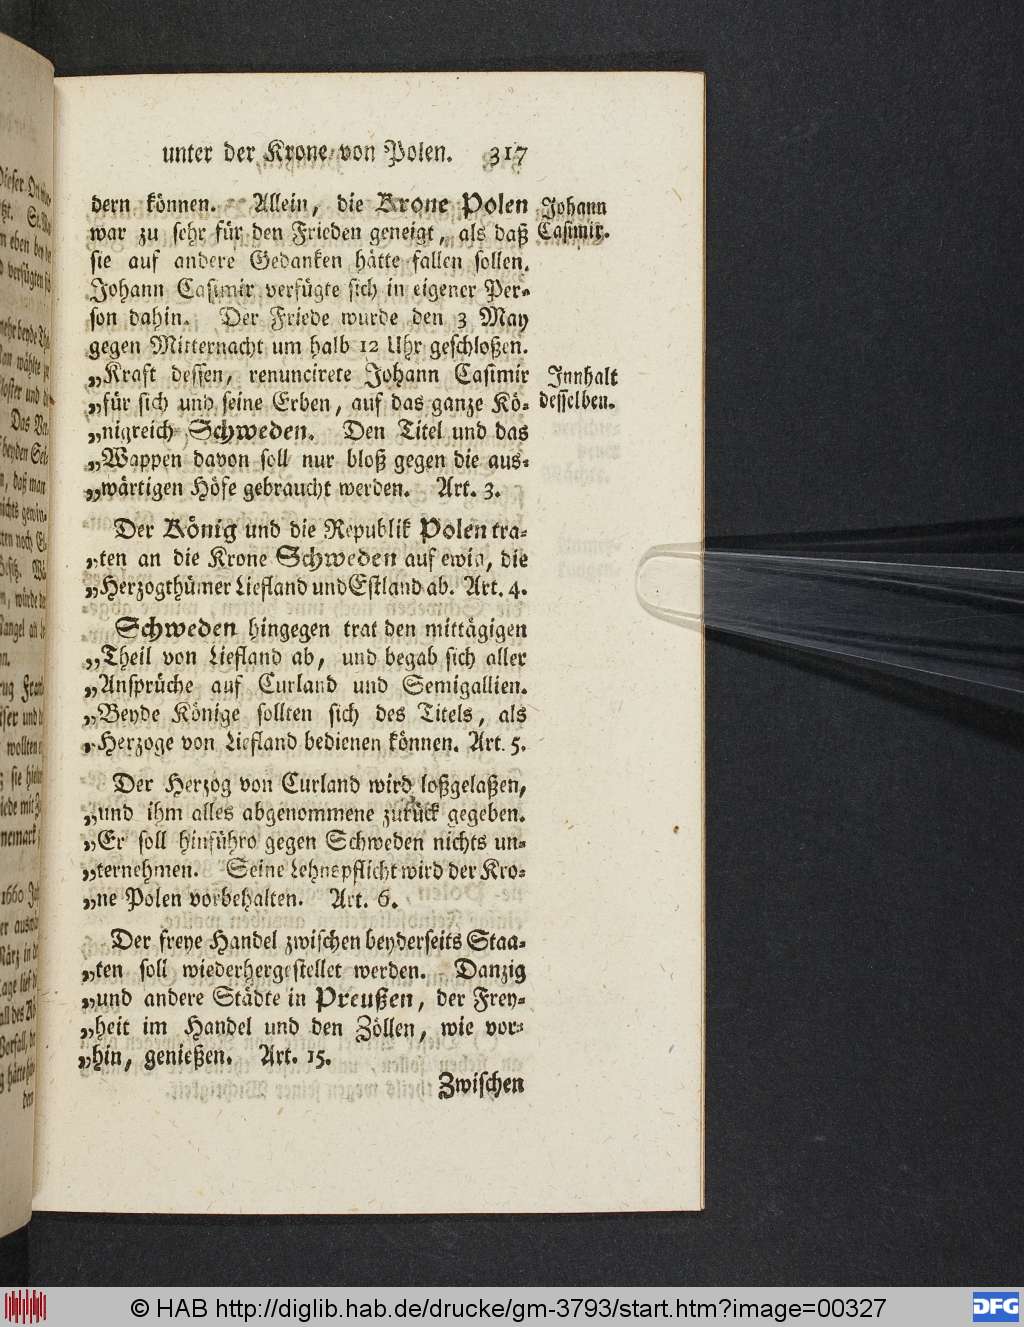 unter der Krone von Polen. 317
dern können. Allein, die Krone Polen
war zu sehr für den Frieden geneigt, als daß
sie auf andere Gedanken hätte fallen sollen.
Johann Casimir verfügte sich in eigener Per-
son dahin. Der Friede wurde den 3 May
gegen Mitternacht um halb 12 Uhr geschloßen.
„Kraft dessen, renuncirete Johann Casimir
„für sich und seine Erben, auf das ganze Kö-
„nigreich Schweden. Den Titel und das
„Wappen davon soll nur bloß gegen die aus-
„wärtigen Höfe gebraucht werden. Art. 3.
Der König und die Republik Polen tra-
„ten an die Krone Schweden auf ewig, die
„Herzogthümer Liefland und Estland ab. Art. 4.
Schweden hingegen trat den mittägigen
„Theil von Liefland ab, und begab sich aller
„Ansprüche auf Curland und Semigallien.
„Beyde Könige sollten sich des Titels, als
„Herzoge von Liefland bedienen können. Art. 5.
Der Herzog von Curland wird loßgelaßen,
„und ihm alles abgenommene zurück gegeben.
„Er soll hinführo gegen Schweden nichts un-
„ternehmen. Seine Lehnspflicht wird der Kro-
„ne Polen vorbehalten. Art. 6.
Der freye Handel zwischen beyderseits Staa-
„ten soll wiederhergestellet werden. Danzig
„und andere Städte in Preußen, der Frey-
„heit im Handel und den Zöllen, wie vor-
„hin, genießen. Art. 15.
Zwischen
Johann
Casimir.
Innhalt
desselben.
© HAB http://diglib.hab.de/drucke/gm-3793/start.htm?image=00327
DFG